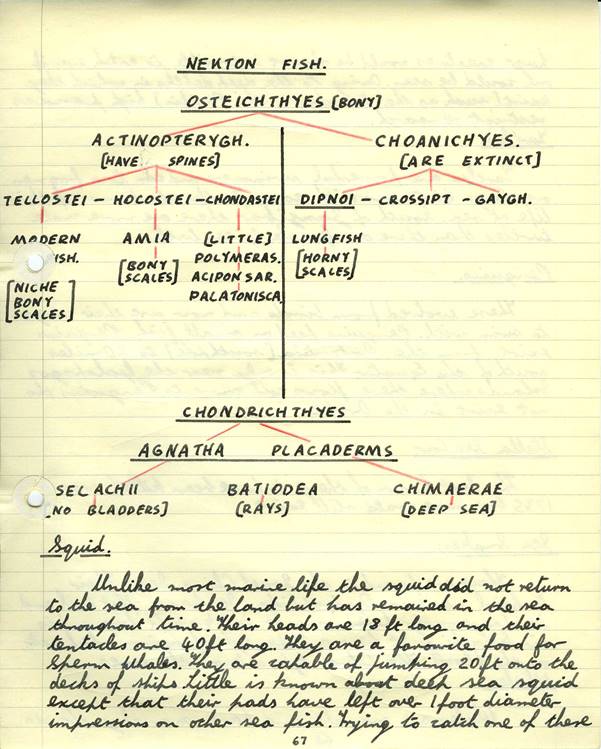 NEKTON FISH.
OSTEICHTHYES [BONY]
ACTINOPTERYGH. CHOANICHYES.
[HAVE SPINES] [ARE EXTINCT]
TELLOSTEI - HOCOSTEI - CHONDASTEI DIPNOI - CROSSIPT - GAYGH.
MODERN AMIA [LITTLE] LUNGFISH
ISH. [BONY POLYMERAS. [HORNY
SCALES] ACIPONSAR. SCALES]
[NICHE PALATONISCA.
BONY
SCALES]
CHONDRICHTHYES
AGNATHA PLACADERMS
SELACHII BATIODEA CHIMAERAE
[NO BLADDERS] [RAYS] [DEEP SEA]
Squid.
Unlike most marine life the squid did not return
to the sea from the land but has remained in the sea
throughout time. Their heads are 18 ft long and their
tentacles are 40ft long. They are a favourite food for
Sperm Whales. They are capable of jumping 20ft onto the
decks of ships Little is known about deep sea squid
except that their pads have left over 1 foot diameter
impressions on other sea fish. Trying to catch one of these
67